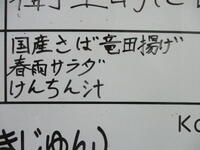 国産さば竜田揚げ
春雨サラダ
けんちん汁
きじゅん)
Kc